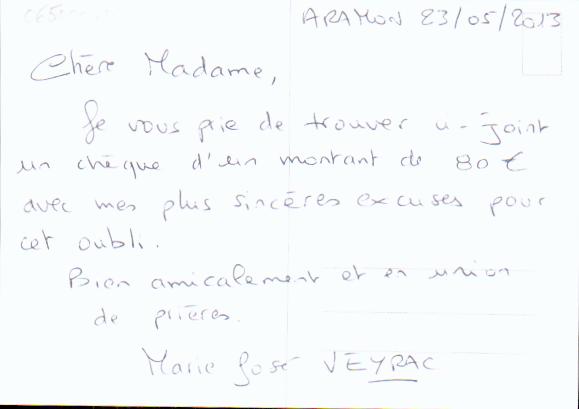 ARAMON 23/05/2013
Chère Madame,
Je vous prie de trouver ci-joint
un chèque d'un montant de 80 €
avec mes plus sincères excuses pour
cet oubli.
Bien amicalement et en union
de prières.
Marie José VEYRAC